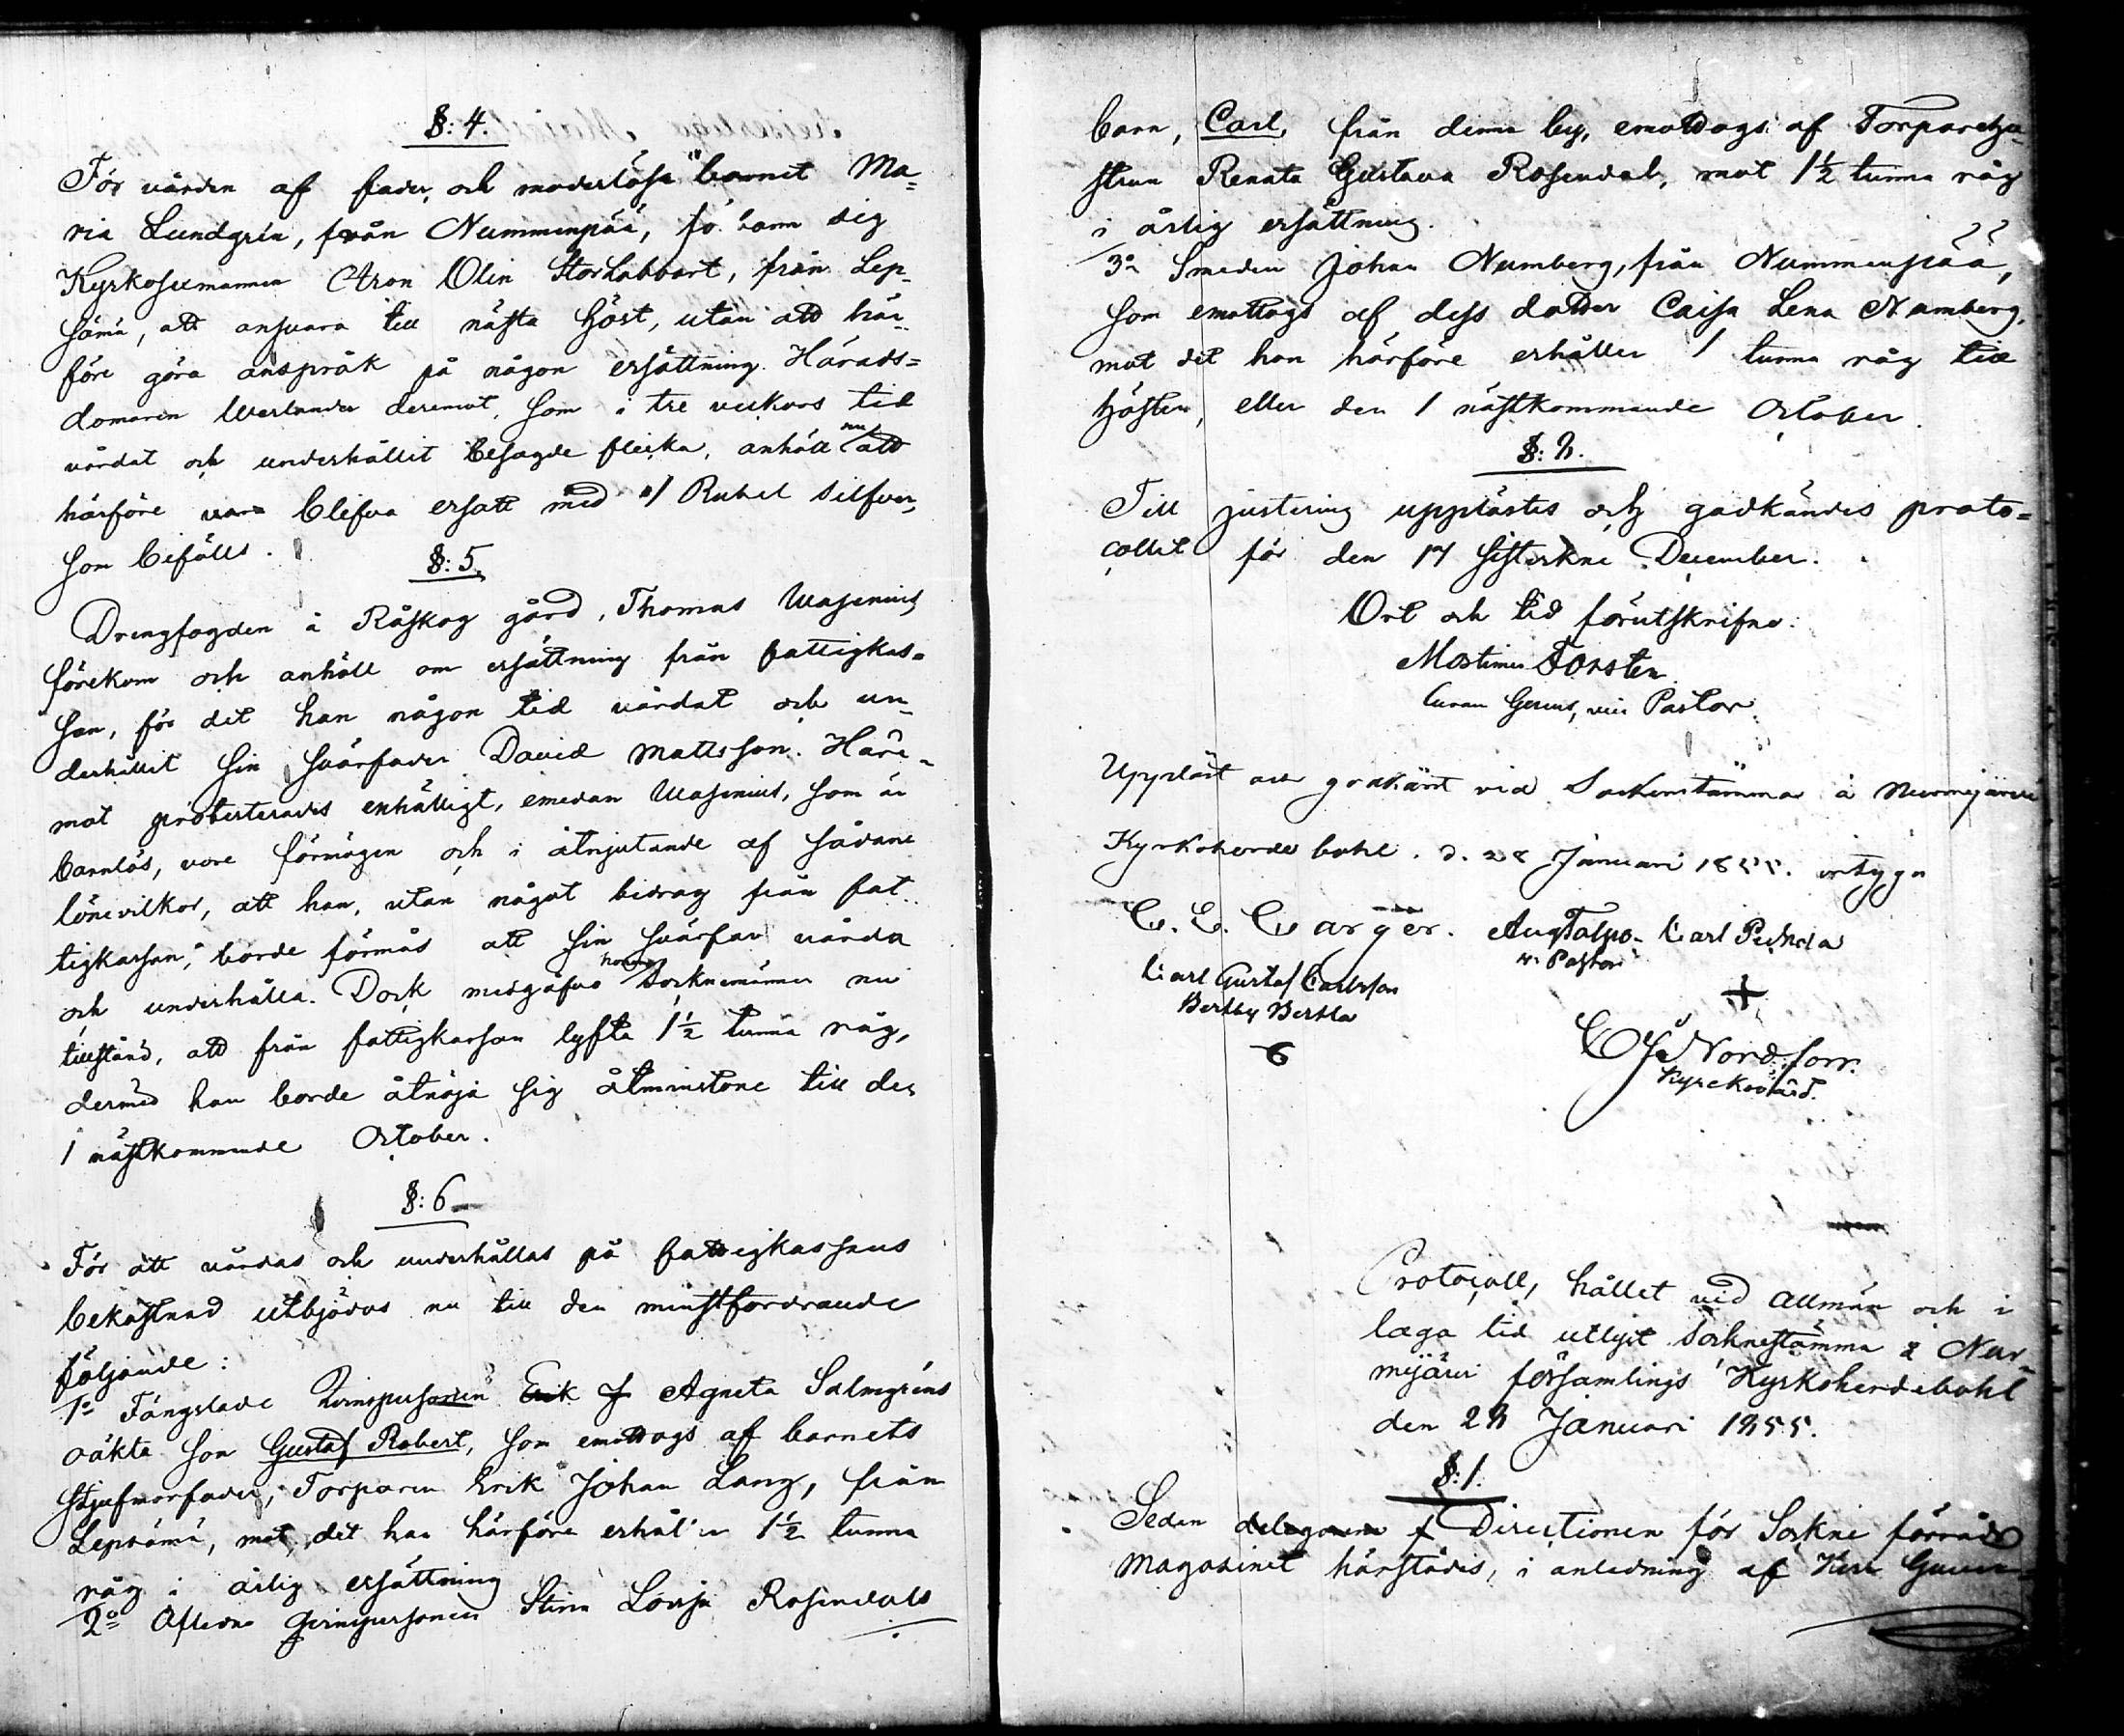 §: 4.
För vården af fader, och moderlösa barnet Ma=
ria Lundgrén, från Nummenpää, så Sig
Aron Olin Storlabbart, från Lep-
sämä, att ansvara till nästa höst, utan att här
före göra anspråk på någon ersättning. Härads=
domaren deremot, som i tre veckors tid
vårdat och underhållit besagde flicka, anhöll nu att
härföre vara blifva ersatt med 1 Rubel Silfver,
som bifölls.
§: 5.
Drengfogden å Råskog gård, Thomas Wasenius
förekom och anhöll om ersättning från fattigkas=
san, för det han någon tid vårdat och un-
derhållit sin svärfader David Mattsson. Häre-
mot protesterades enhälligt, emedan Wasenius, som är
barnlös, vore förmögen och i åtnjutande af sådane
lönevilkor, att han, utan något bidrag från fat-
tigkassan, borde förmås att sin svärfar vårda
och underhålla. Dock medgåfvo honom Socknemännen nu
tillstånd, att från fattigkassan lyfta 1½ tunna råg,
dermed han borde åtnöja sig åtminstone till den
1 nästkommande October.
§: 6
För att vårdas och underhållas på fattigkassans
bekostnad utbjödos nu till den minstfordrande
följande:
1o Fängslade Qvinspersonen Erik J Agneta Salmgréns
oäkta son Gustaf Robert, som emottogs af barnets
stjufmorfader, Torparen Erik Johan Lang, från
Lepsämä, mot det han härföre erhåller 1½ tunna
råg i årlig ersättning
2o Aflidne Qvinspersonen Stina Lovisa Rosendals
barn, Carl, från denna by, emottogs af Torparehu-
strun Renata Gustava Rosendal, mot 1½ tunna råg
i årlig ersättning.
3o Smeden Johan Numberg, från Nummenpää,
som emottogs af dess dotter Caisa Lena Numberg,
mot det hon härföre erhåller 1 tunna råg till
hösten, eller den 1 nästkommande October.
§: 8.
Till justering upplästes och godkändes proto=
collet för den 17 sistvikne December.
Ort och tid förutskrifne:
Mortimer Forstén
Pastor.
Uppläst och godkänt vid Sockenstämma å Nurmijärvi
Kyrkoherde bohl. d. 28 Januari 1855. intyga
C. E. Carger. Aug Talpo. Carl Puhela
v. Pastor
Carl Gustaf Carlsson
Bertby Bertla
+
6
Nordfors.
Kyrckovärd.
Protocoll, hållet vid allmän och i
laga tid utlyst Socknestämma å Nur-
mijärvi församlings Kyrkoherdebohl
den 28 Januari 1855.
§: 1.
Sedan Directionen för Sockne förråds
magasinet härstädes, i anledning af Herr